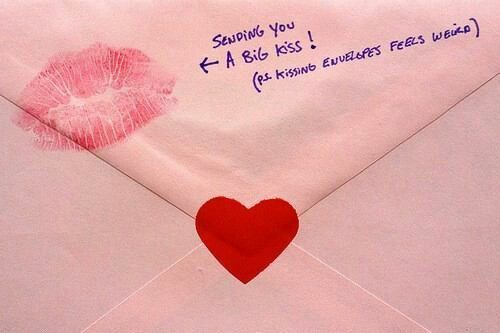 SENDING YOU
← A BIG KISS!
(PS KISSING ENVELOPES FEELS WEIRD)